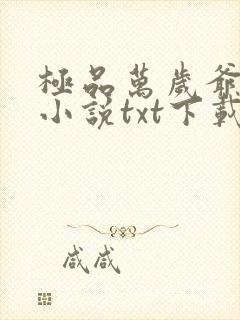 極品萬歲爺
小說txt下載
咸咸